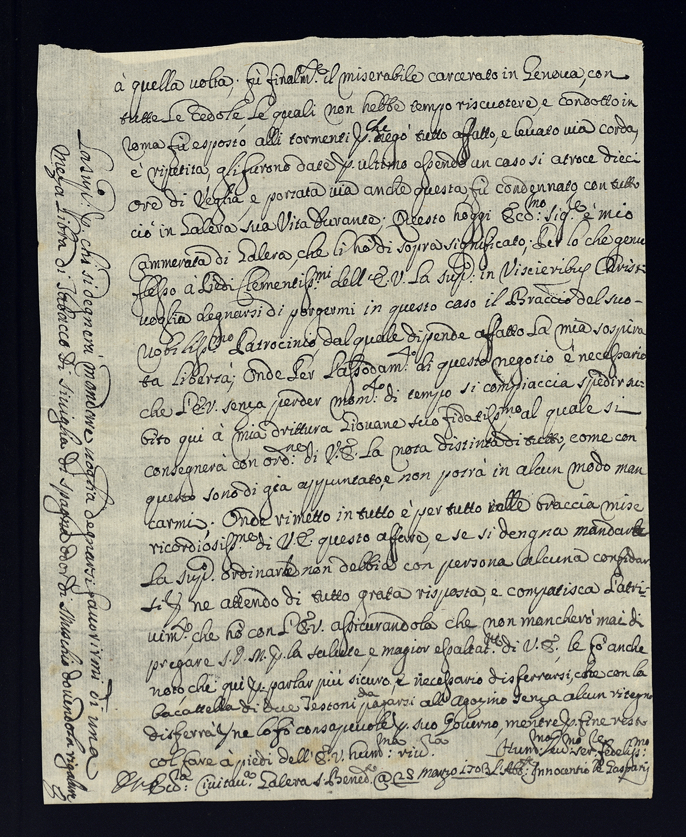 à quella volta. fù finalm.te il miserabile carcerato in Genova, con
tutte Le Cedole, Le quali non hebbe tempo riscuotere, e condotto in
Roma fù esposto alli tormenti p.che negò tutto affatto, e levato via corda,
e ripetita, gli furono date p. ultimo essendo un caso si atroce dieci
ore di Veglia, e portata via anche questa fù condennato con tutto
ciò in Galera sua Vita durante. Questo hoggi Ecc.mo Sig.re è mio
Cammerata di Galera, che li hò di sopra significato. Per lo che genu
flesso a Piedi Clementiss.mi dell'E.V. La sup.co in Visceribus Christi
voglia degnarsi di porgermi in questo caso il Braccio del suo
Nobiliss.mo Patrocinio dal quale dipende affatto La mia sospira
ta Libertà; Onde Per L'assodam.to di questo negotio è necessario
che L'E.V. senza perder mom.to di tempo si compiaccia spedir su
bito qui à mia drittura Giovane suo fidatiss.mo al quale si
consegnerà con ord.ne di V.E. La nota distinta di tutto, come con
questo sono di già appuntato, e non potrà in alcun modo man
carmi. Onde rimetto in tutto e per tutto nelle braccia mise
ricordiosiss.me di V.E. questo affare, e se si dengna mandarle
La sup.co ordinarle non debbia con persona alcuna confidar
si, ne attendo di tutto grata risposta, e compatisca L'atri
vim.to, che hò con L'E.V. assicurandola che non mancherò mai di
pregare S.D.M. p. la salute, e magior esaltat.ne di V.E. le fò anche
noto che qui p. parlar più sicuro, è necessario disferrarsi, che con la
bacattella di due Testoni da pagarsi all'Agozino senza alcun ritegno
disferra, ne lo fò consapevole p. suo Governo, mentre p. fine resto
col fare à piedi dell'E.V. hum.ma riv.za
Hum.mo ser.re fedeliss.mo
Ecc.za Civitav.a Galera S. Bened.o @ 28 Marzo 1703 L'Abb.e Innocentio de Gasparis
La sup.co à chi si degnerà mandare voglia degnarsi favorirmi di una
meza Libra di Tabacco di Siviglia di Spagna odor di Muschio dovendola regalare